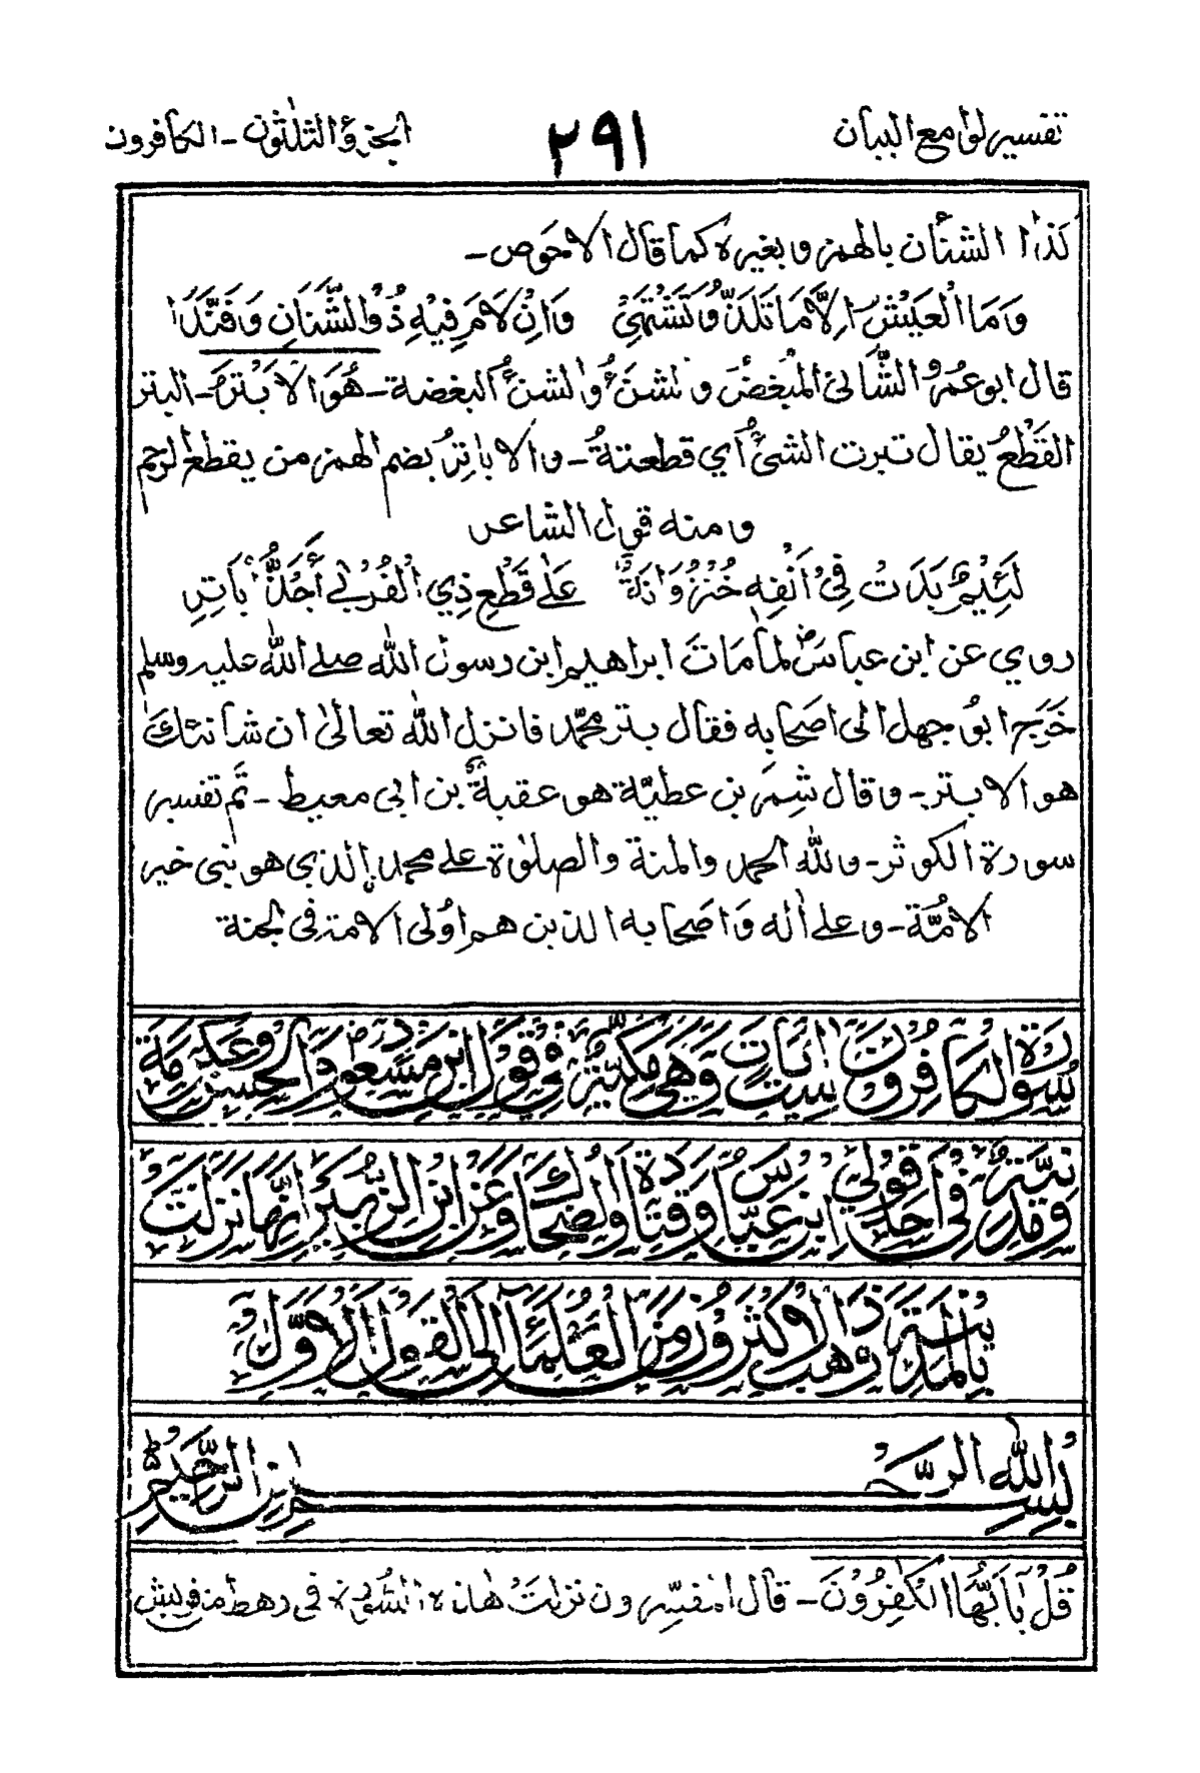 تفسير لوامع البيان ٢٩١ الجزؤ الثلٰثون - الكافرون
كَذٰا الشنأٰن بالهمز و بغيره كما قال الاحَوَص -
وَمَا الْعَيْشُ اِلَّا مَا تَلَذُّ وَتَشْتَهِيْ وَاِنْ لَامَ فِيْهِ ذُوْ الشَّنَانِ وَفَنَّدَا
قال ابو عمرو الشَّانئ المُبغِضُ و الشنَأُ والشنئُ البغضة - هُوَ الْاَبْتَرُ - البتر
القَطْعُ يقال تبرت الشئَ أي قطعتهُ - و الاباتِرُ بضم الهمز من يقطع الرحم
و منه قول الشاعر
لَئِيْمٌ بَدَتْ فِيْ اَنْفِهِ خُنْزُوَانَةٌ عَلٰى قَطْعِ ذِي الْقُرْبٰى أَجَذُّ اُبَاتِرِ
روي عن ابن عباسؓ لما مَاتَ ابراهيم ابن رسول الله صلى الله عليه وسلم
خَرَجَ ابو جهل الى اصَحابه فقال بتر محمّد فانزل الله تعالىٰ ان شانئك
هو الابتر - و قال شِمَر بن عطيّة هو عقبة بن ابى معيط - تَّم تفسير
سورة الكوثر - و لله الحمد والمنة والصلوٰة على محمد الذي هو نبى خير
الامَّة - و على اٰله وَاصَحابه الذين هم اوُلى الامة فى الجنة
سُوْرَةُ الْكَافِرُوْنَ سِتُّ اٰيَاتٍ وَهِيَ مَكِّيَّةٌ فِيْ قَوْلِ ابْنِ مَسْعُوْدٍؓ وَالْحَسَنِ وَعِكْرِمَةَ
وَمَدَنِيَّةٌ فِيْ اَحَدِ قَوْلَيْ اِبْنِ عَبَّاسٍ وَقَتَادَةَ وَالضَحَّاكِ وَعَنْ ابْنِ الزُّبَيْرِ اِنَّهَا نَزَلَتْ
بِالْمَدِيْنَةِ وَذَهَبَ الْاَكْثَرُوْنَ مِنَ الْعُلَمَاءِ اِلَى الْقَوْلِ الْاَوَّلِ
بِسْمِ اللهِ الرَّحْمٰنِ الرَّحِيْمِ
قُلْ يَا اَيُّهَا الْكٰفِرُوْنَ - قال المفسّرون نزلتْ هٰذه السُّورة فى رهط من قريش